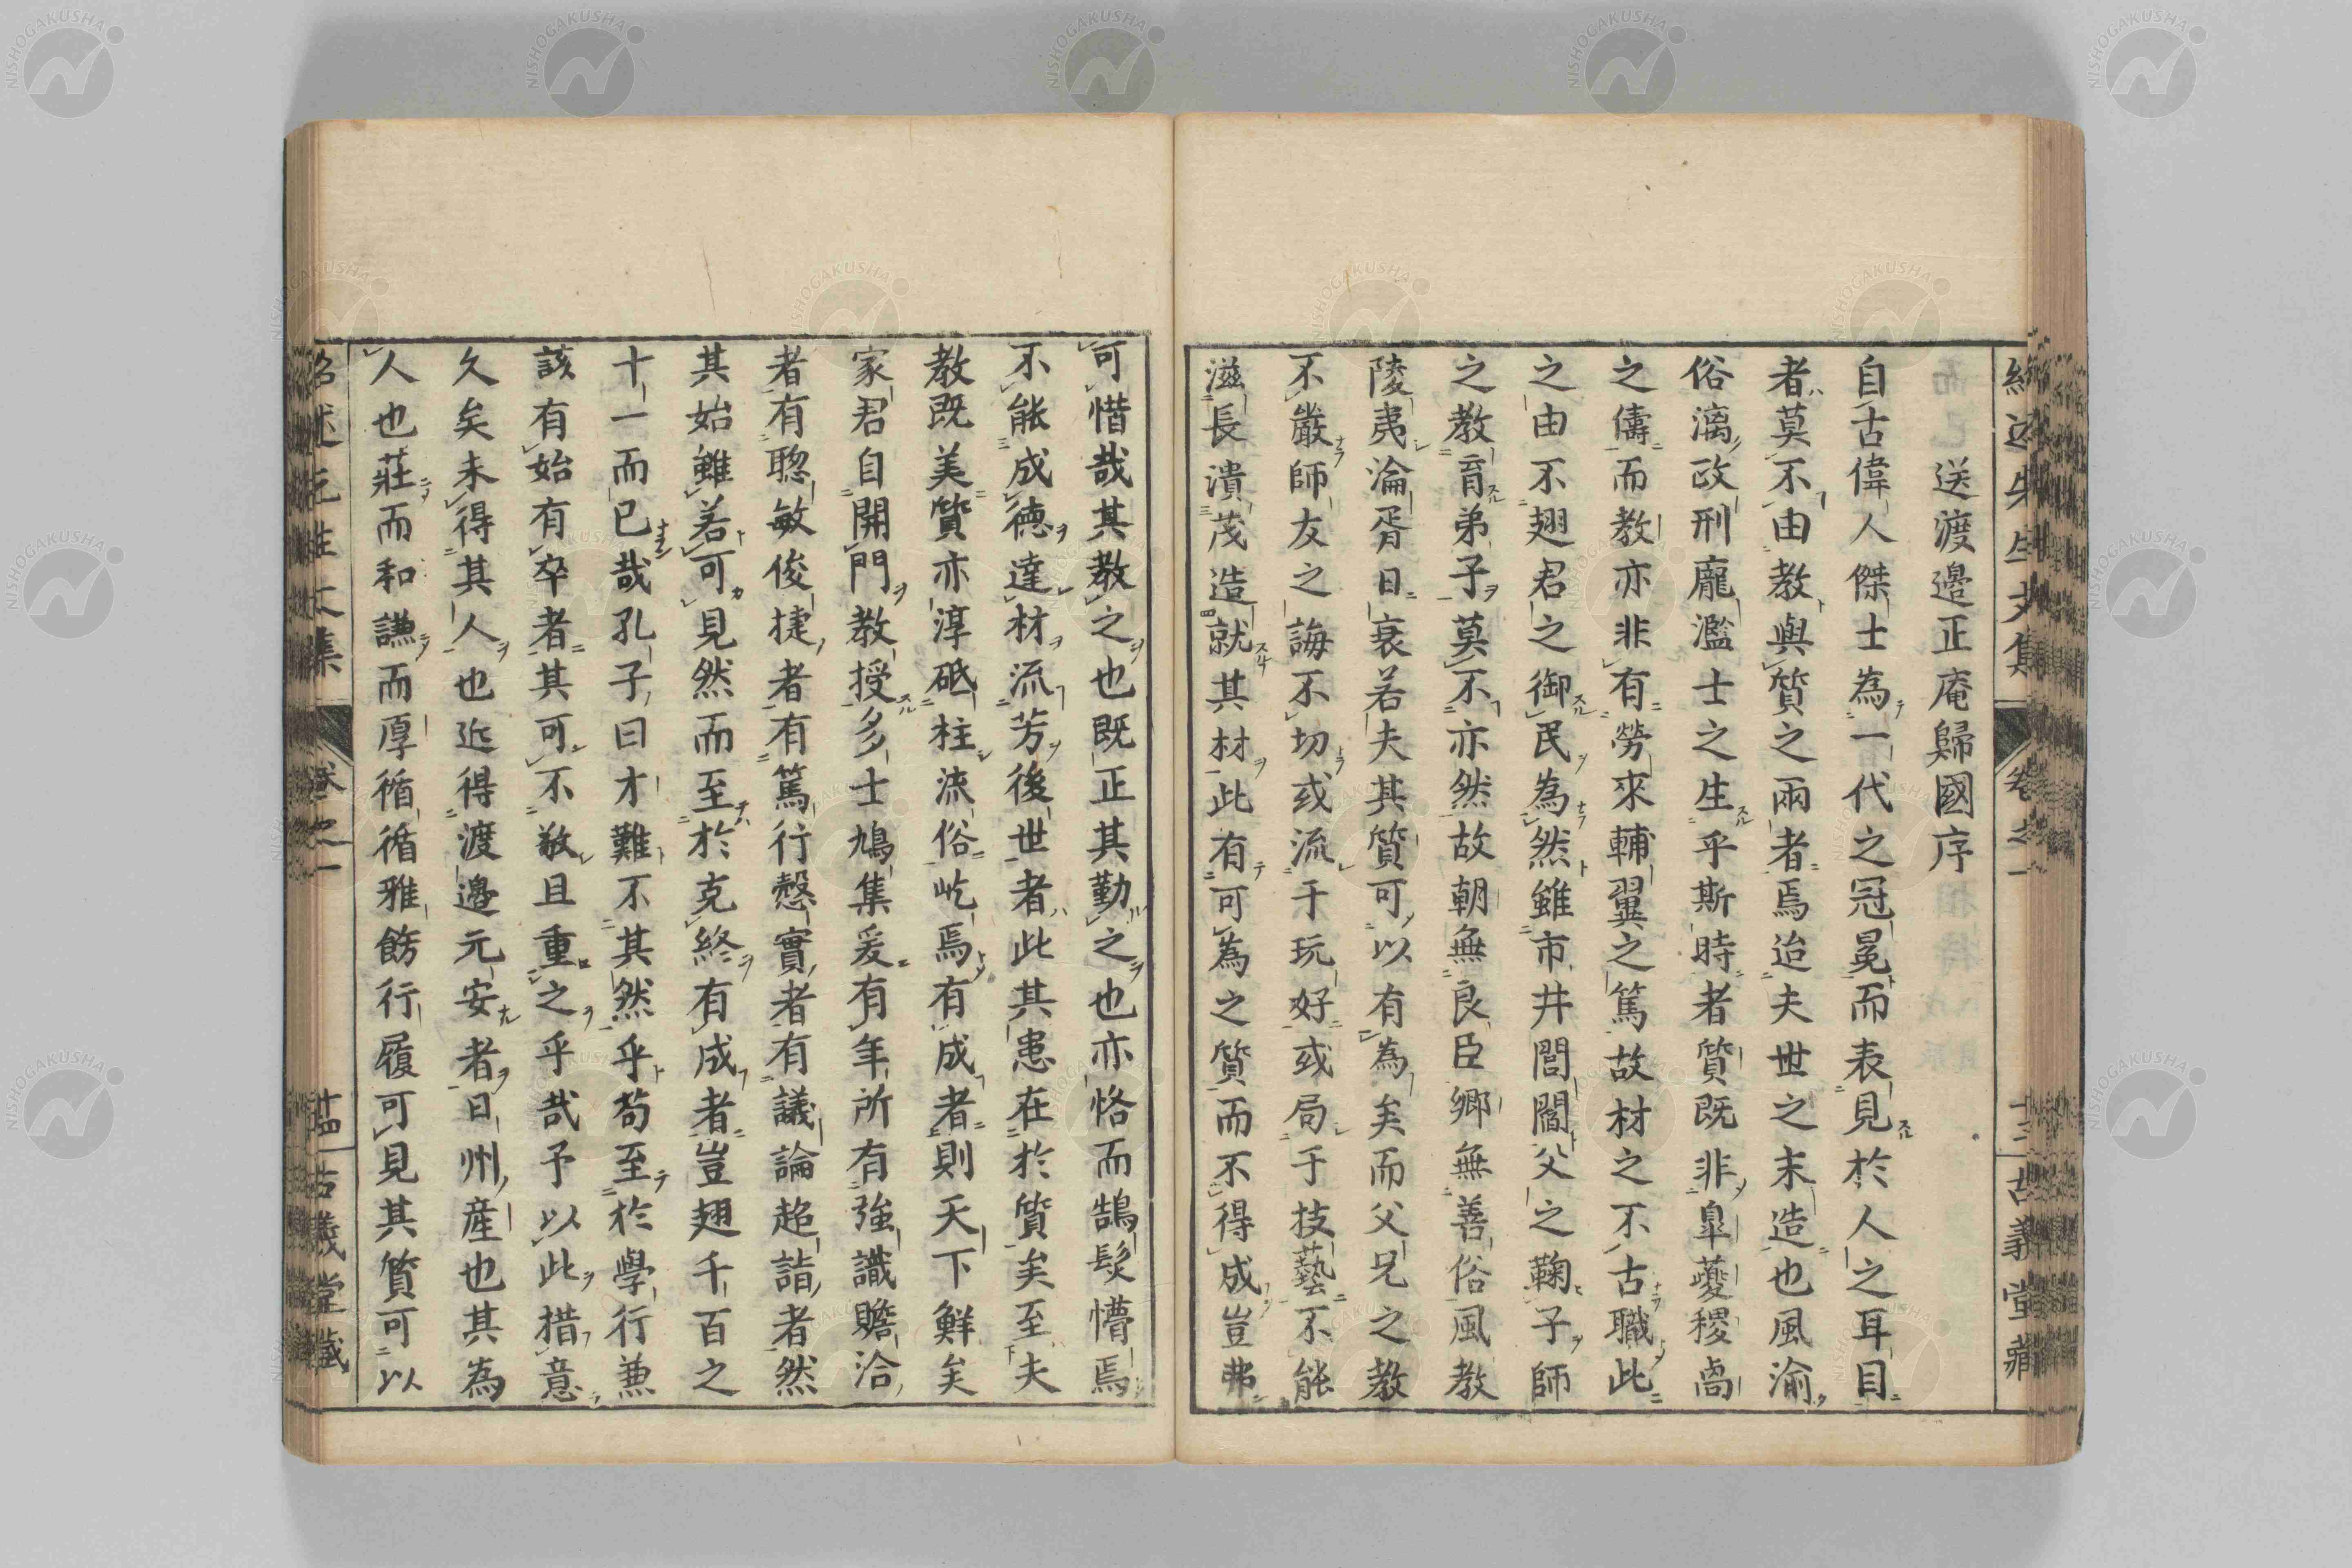 送渡邉正庵歸國序
自古偉人傑士為一代之冠冕而表見於人之耳目
者莫不由教與質之兩者焉迨夫世之末造也風渝
俗漓政刑龐濫士之生乎斯時者質既非皐夔稷卨
之儔而教亦非有勞來輔翼之篤故材之不古職此
之由不翅君之御民為然雖市井閭閻父之鞠子師
之教育弟子莫不亦然故朝無良臣鄉無善俗風教
陵夷淪胥日衰若夫其質可以有為矣而父兄之教
不嚴師友之誨不切或流于玩好或局于技藝不能
滋長潰茂造就其材此有可為之質而不得成豈弗
可惜哉其教之也既正其勤之也亦恪而鵠髮懵焉
不能成德達材流芳後世者此其患在於質矣至夫
教既美質亦淳砥柱流俗屹焉有成者則天下鮮矣
家君自開門教授多士鳩集爰有年所有強識贍洽
者有聦敏俊捷者有篤行愨實者有議論超詣者然
其始雖若可見然而至於克終有成者豈翅千百之
十一而已哉孔子曰才難不其然乎苟至於學行兼
該有始有卒者其可不敬且重之乎哉予以此措意
久矣未得其人也近得渡邉元安者日州產也其為
人也莊而和謙而厚循循雅飭行履可見其質可以
卷之一
古義堂藏